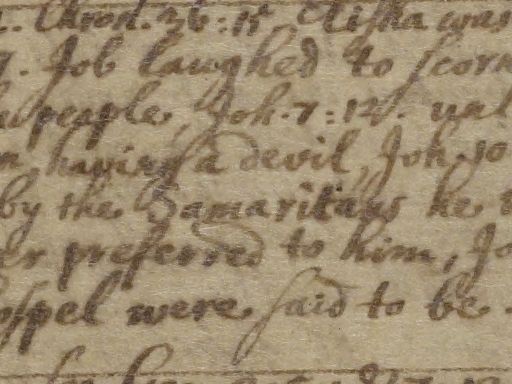 . Chron. 36:15 Elisha was
. Job laughed to scorn
people, Joh. 7:12.
having a devil, Joh. 10
by the Samaritans he
preferred to him, Jo
ospel were said to be